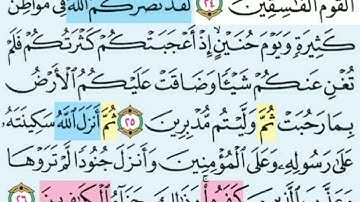 ٱلْقَوْمَ ٱلْفَٰسِقِينَ ٢٤ لَقَدْ نَصَرَكُمُ ٱللَّهُ فِى مَوَاطِنَ
كَثِيرَةٍ وَيَوْمَ حُنَيْنٍ إِذْ أَعْجَبَتْكُمْ كَثْرَتُكُمْ فَلَمْ
تُغْنِ عَنكُمْ شَيْـًٔا وَضَاقَتْ عَلَيْكُمُ ٱلْأَرْضُ
بِمَا رَحُبَتْ ثُمَّ وَلَّيْتُم مُّدْبِرِينَ ٢٥ ثُمَّ أَنزَلَ ٱللَّهُ سَكِينَتَهُۥ
عَلَىٰ رَسُولِهِۦ وَعَلَى ٱلْمُؤْمِنِينَ وَأَنزَلَ جُنُودًا لَّمْ تَرَوْهَا
وَعَذَّبَ ٱلَّذِينَ كَفَرُوا۟ وَذَٰلِكَ جَزَآءُ ٱلْكَٰفِرِينَ ٢٦